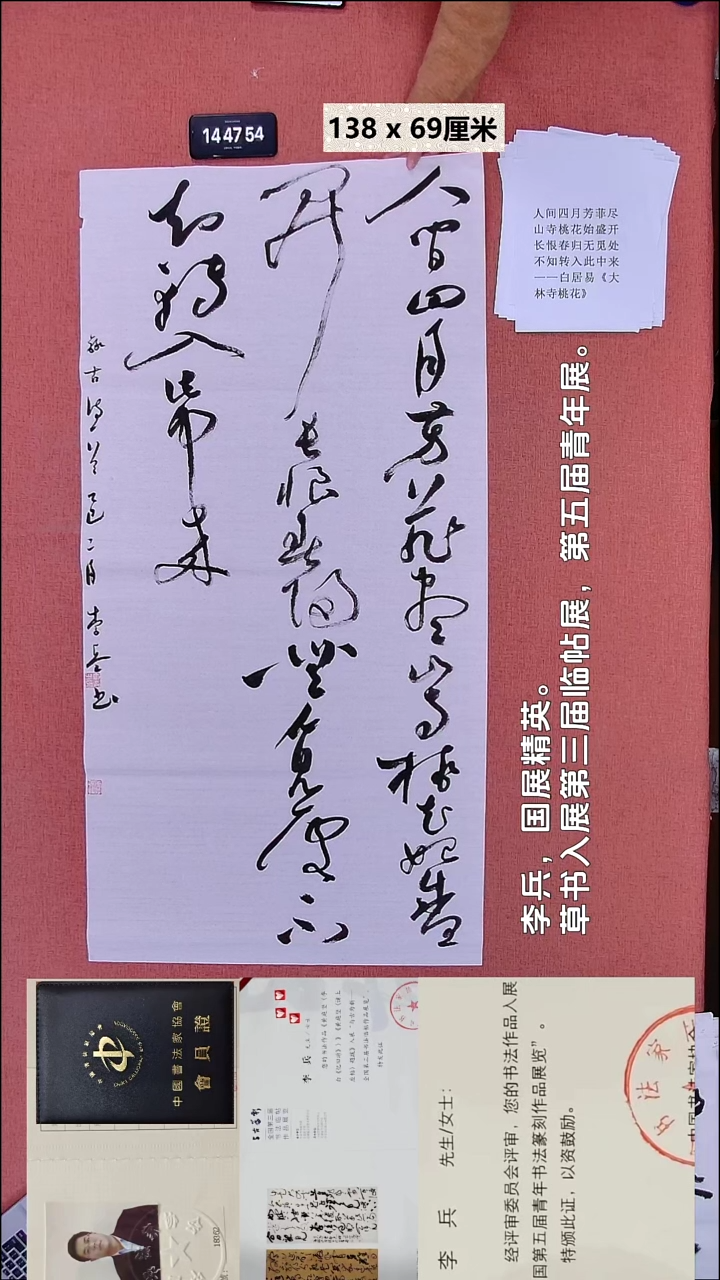 14 47 54
138 x 69厘米
人间四月芳菲尽
山寺桃花始盛开
长恨春归无觅处
不知转入此中来
——白居易《大
林寺桃花》
人间四月芳菲尽山寺桃花始盛
开长恨春归无觅处不
知转入此中来
录古诗一首乙巳二月李兵书
李兵，国展精英。
草书入展第三届临帖展，第五届青年展。
中國書法家協會
會員證
李 兵
全国第三届
书法临帖
作品展览
特发此证
李 兵 先生/女士：
经评审委员会评审，您的书法作品入展
国第五届青年书法篆刻作品展览”。
特颁此证，以资鼓励。